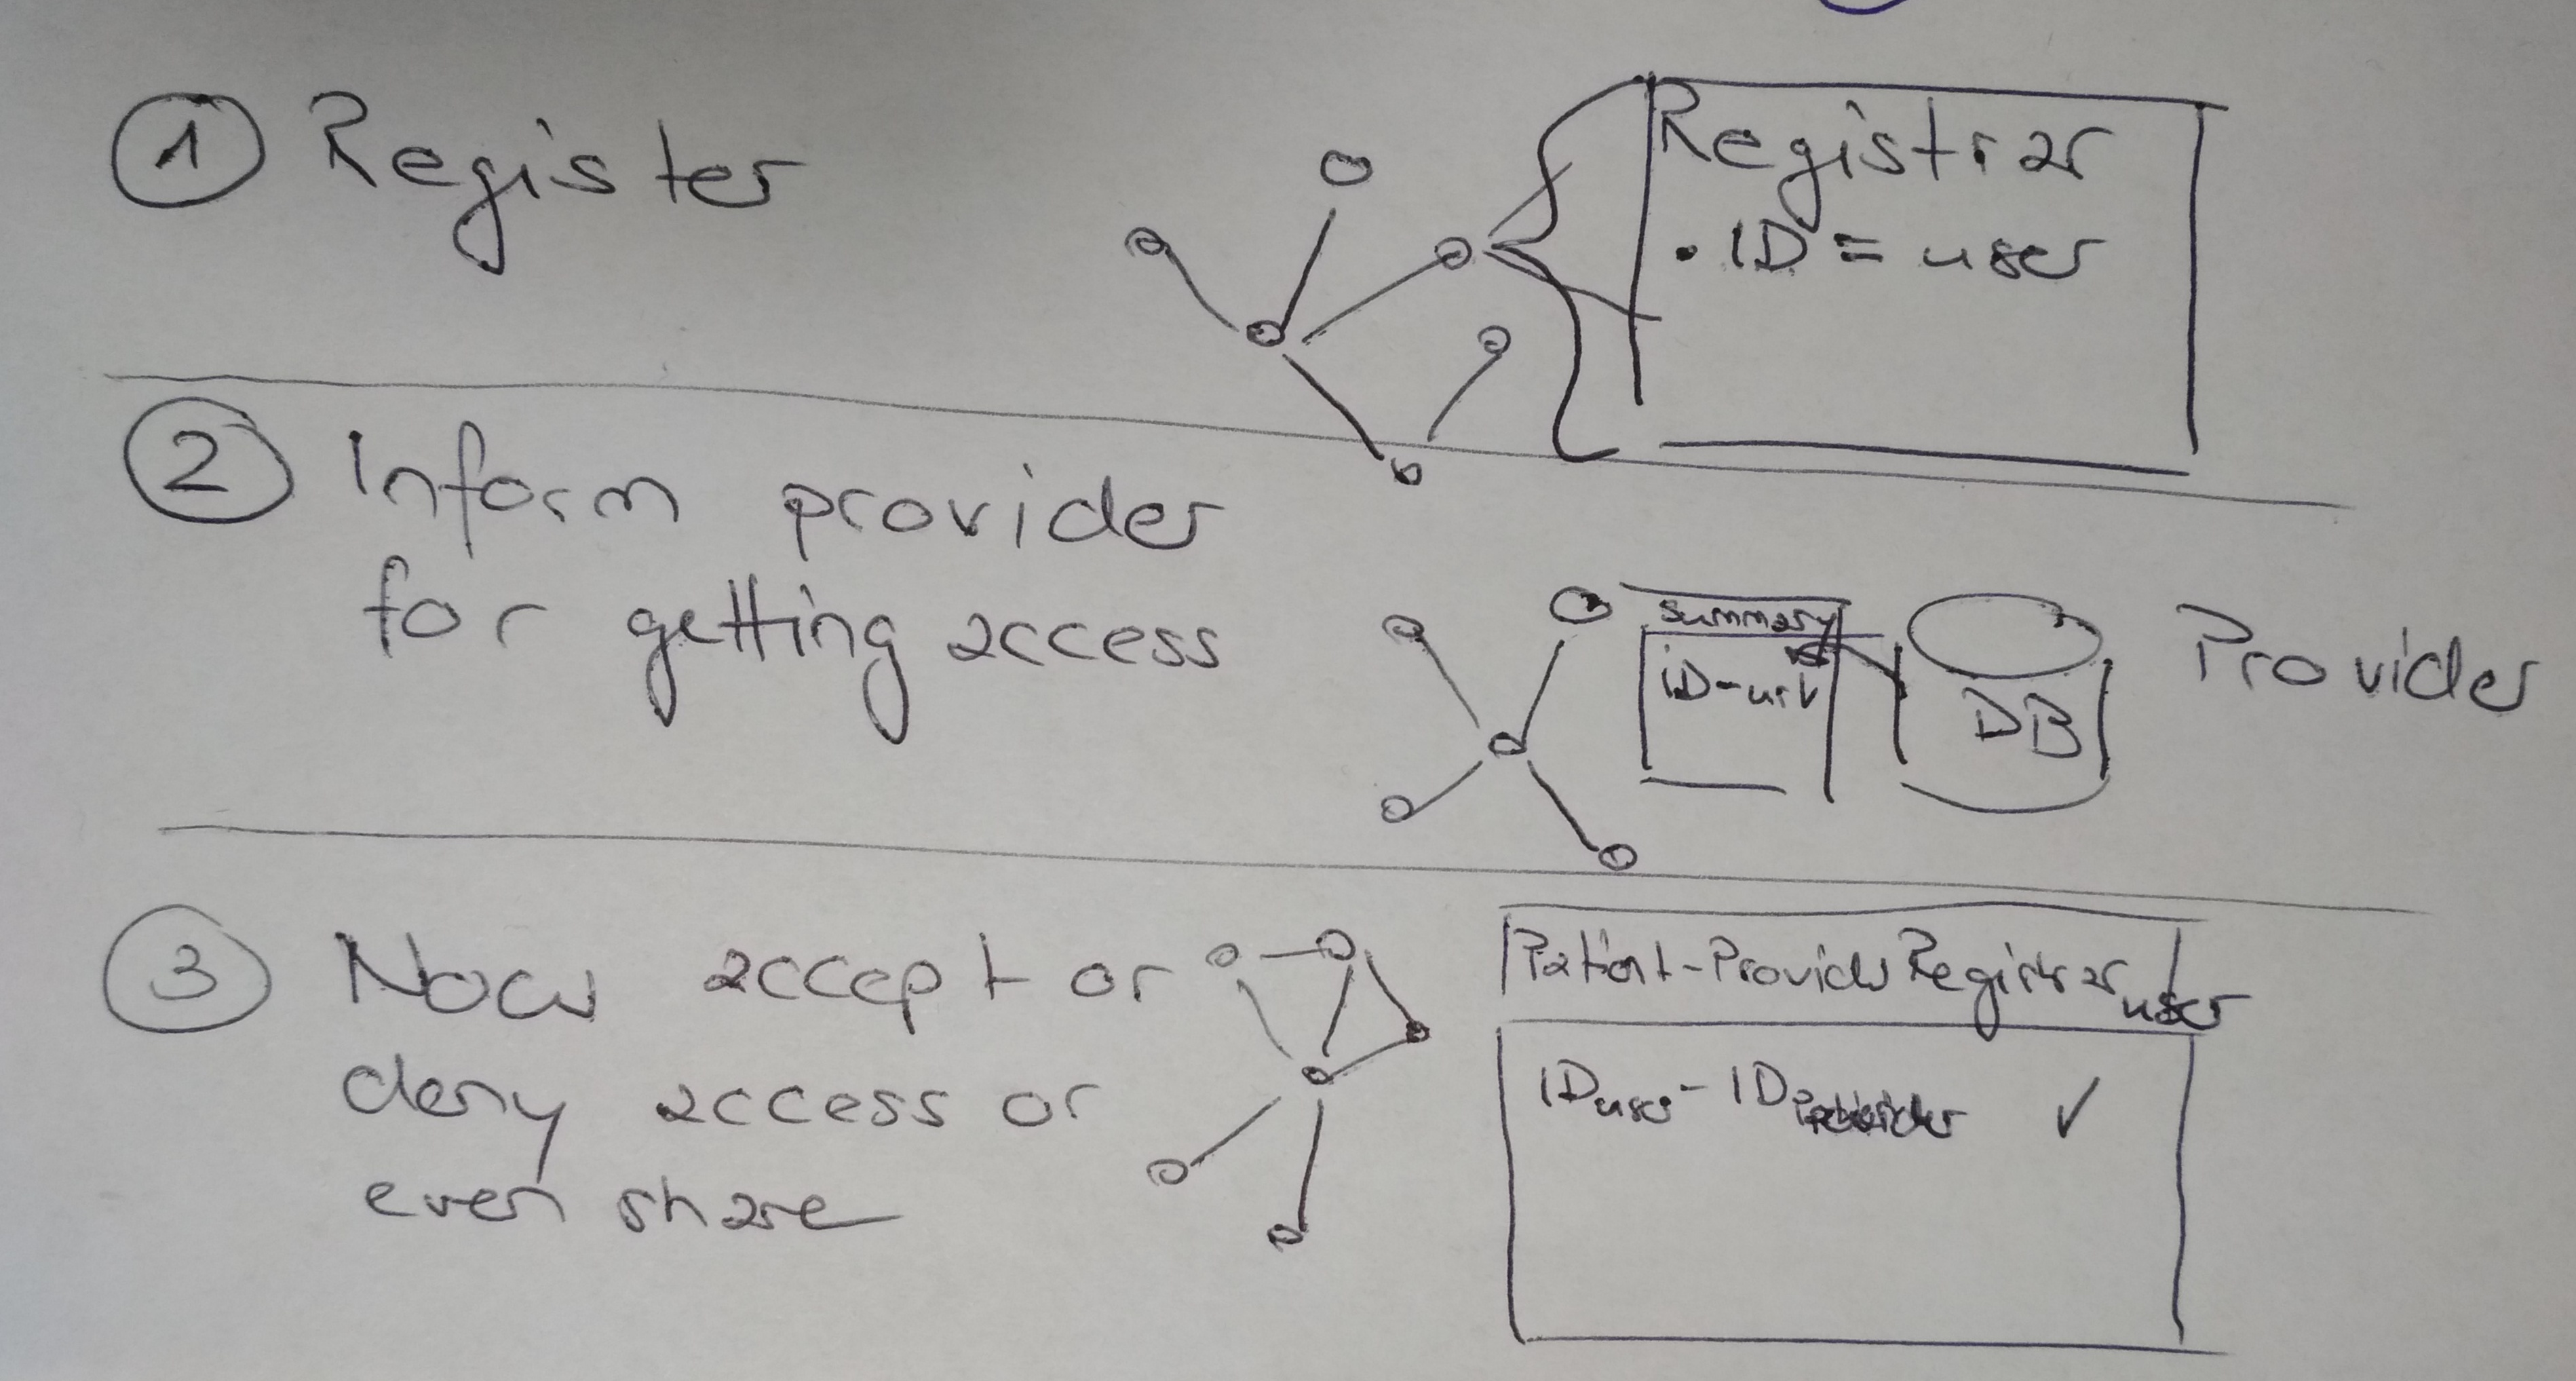 1 Register
Registrar
• ID = user
2 Inform provider
for getting access
summary
ID-url
DB
Provider
3 Now accept or
deny access or
even share
Patient-Provider Registrar user
ID user - ID Provider ✓